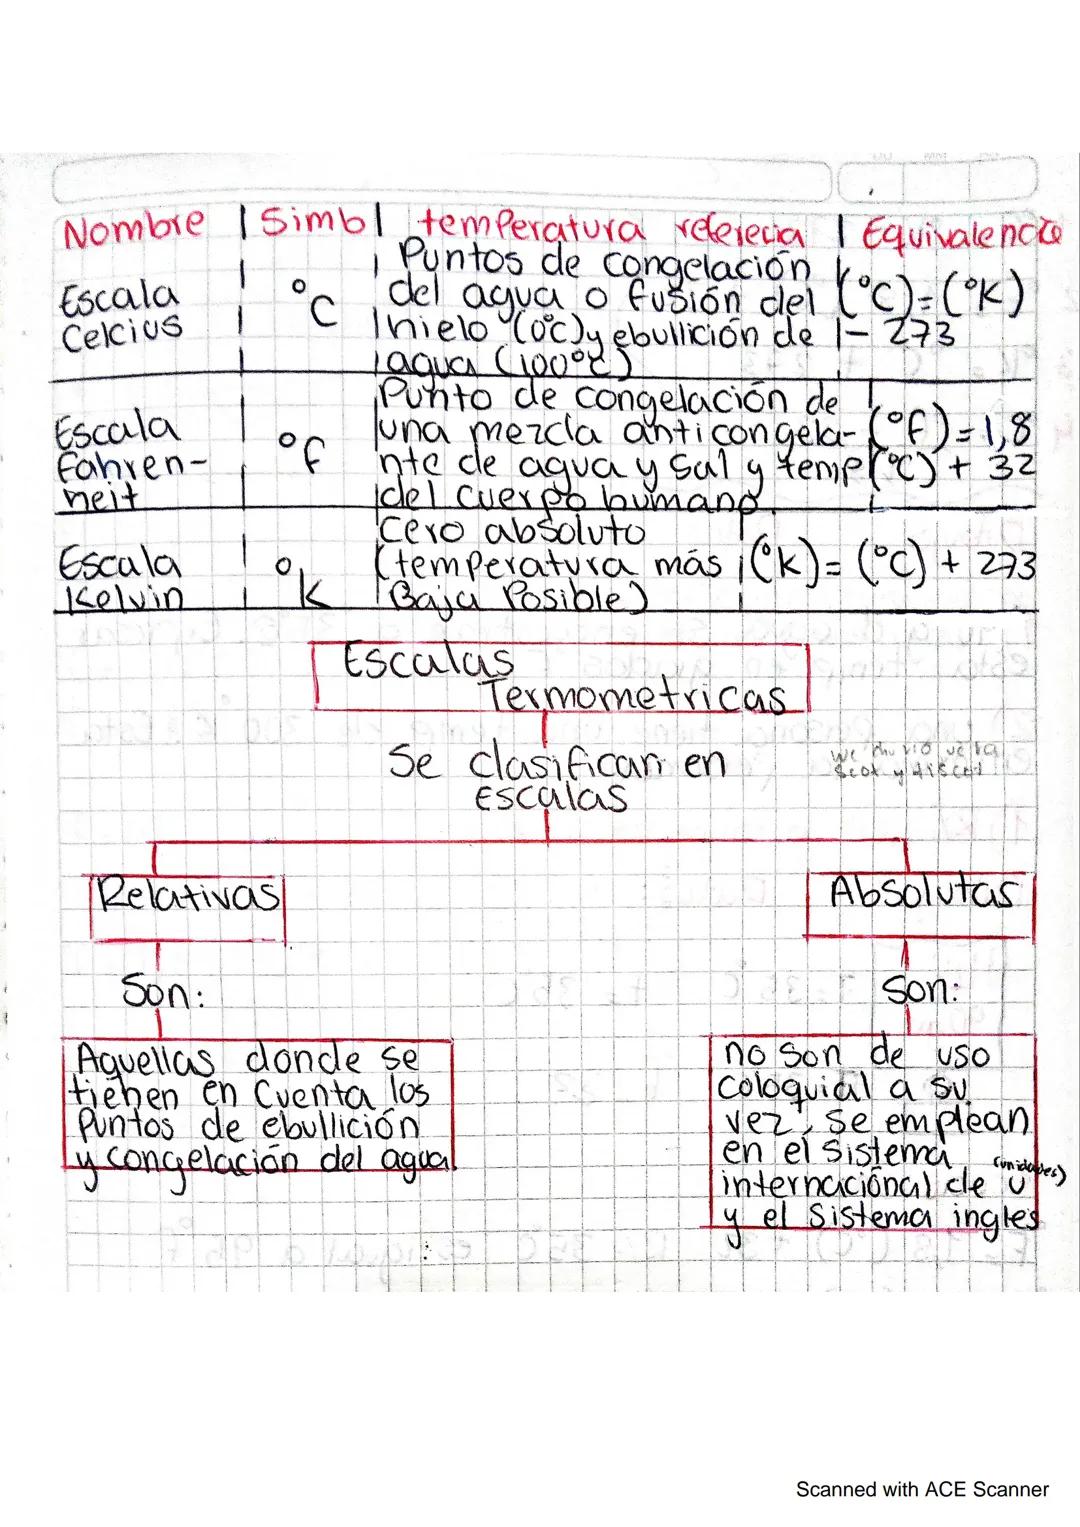 Nombre | Simb | temperatura referecia | Equivalencia
Escala Celcius
°C
Puntos de congelación
del agua o fusión del
hielo (0°c) y ebullición de
agua (100°c)
(°C)=(°K)
- 273
Escala
Fahren-
heit
°f
Punto de congelación de
una mezcla anticongela-
nte de agua y sal y temp
del cuerpo humano.
(°f)=1,8
(°c) + 32
Escala
Kelvin
°k
Cero absoluto
(temperatura más
Baja Posible)
(°k)= (°c) + 273
Escalas
Termometricas
Se clasifican en
Escalas
Relativas
Son:
Aquellas donde se
tienen en cuenta los
Puntos de ebullición
y congelación del agua.
Absolutas
Son:
no son de uso
coloquial a su
vez, se emplean
en el sistema
internacional de U (unidades)
y el sistema ingles
Scanned with ACE Scanner